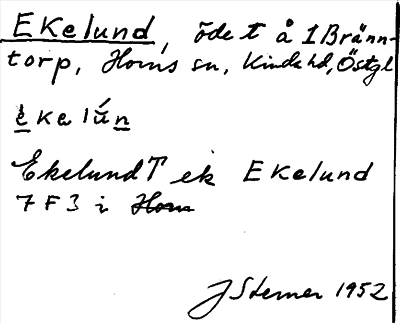 Ekelund, öde t å 1 Bränn-
torp, Horns sn, Kinda hd, Östgl
èkelún
Ekelund T ek Ekelund
7 F 3 i Horn
J Sterner 1952